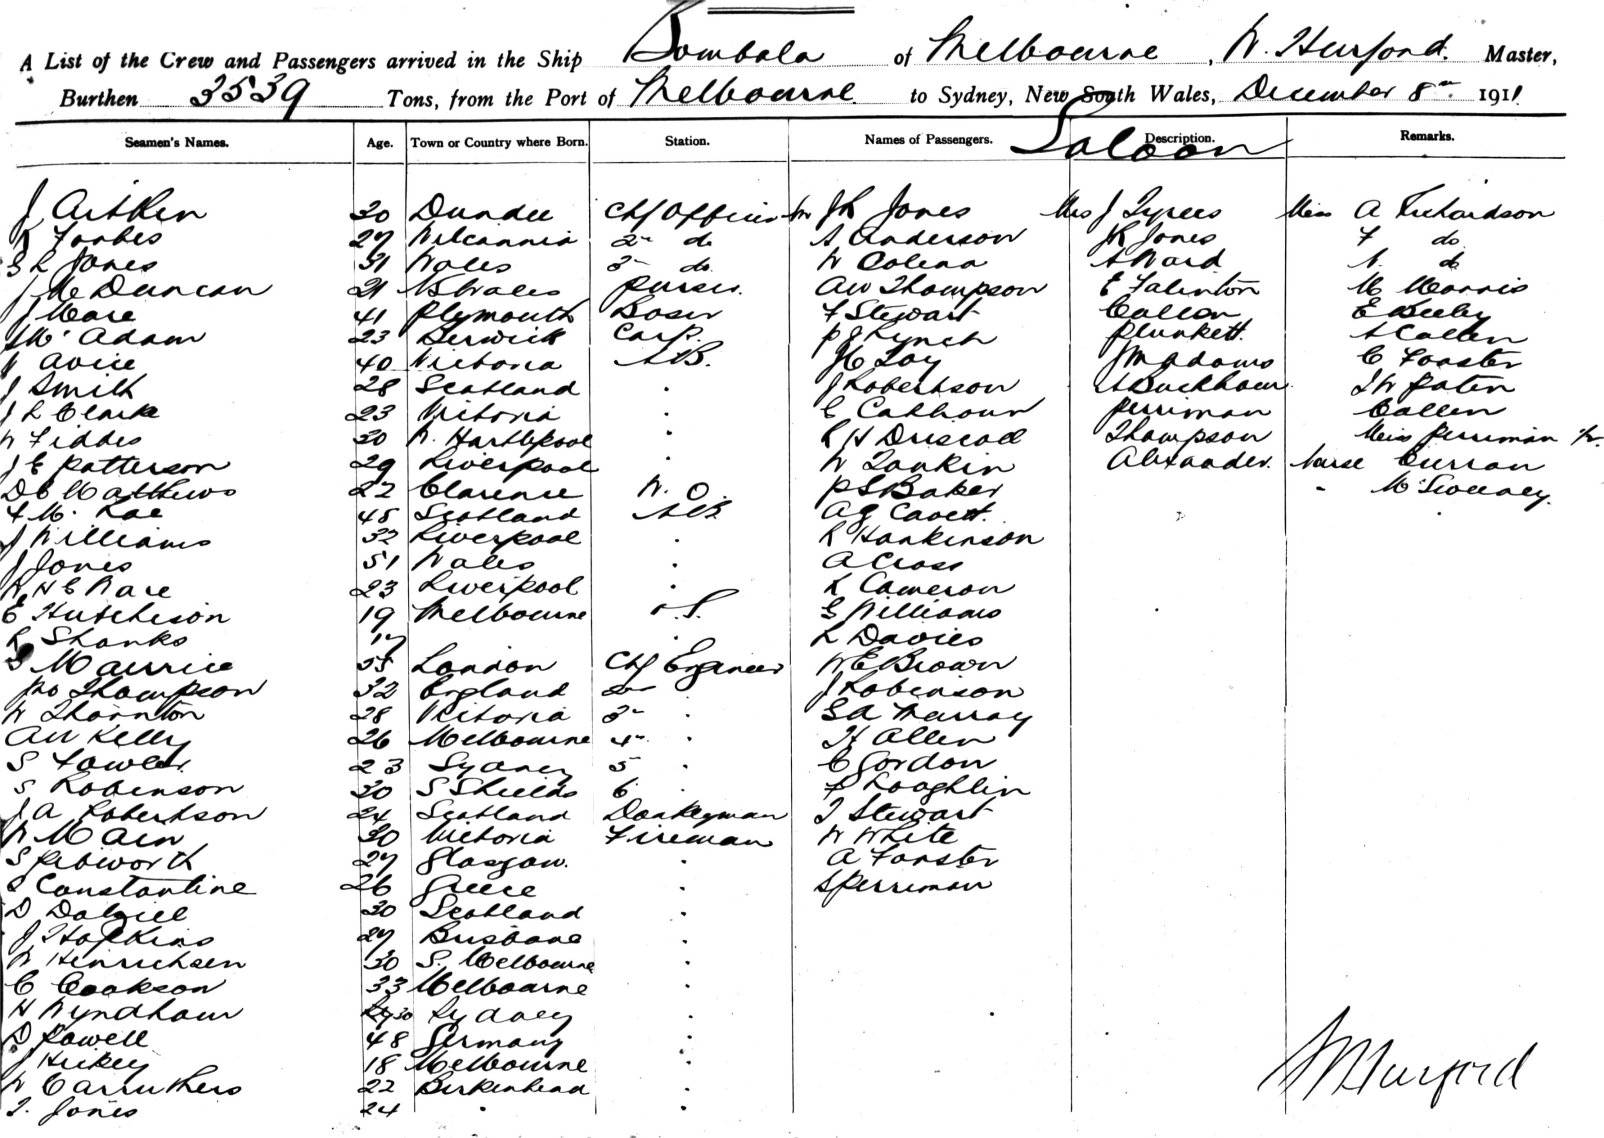 A List of the Crew and Passengers arrived in the Ship Bombala of Melbourne, W. Hurford. Master,
Burthen 3539 Tons, from the Port of Melbourne to Sydney, New South Wales, December 8th 1911
Seamen's Names. Age. Town or Country where Born. Station. Names of Passengers. Description. Remarks.
Saloon
J Aitken 30 Dundee Chf Officer Mr JR Jones Mrs J Tyrees Miss A Richardson
R Forbes 27 Wilcannia 2nd do A Anderson JR Jones F do
S L Jones 31 Wales 3rd do W Colena A Ward N. do
J Mc Duncan 21 NS Wales Purser. AW Thompson E Falinton M Morris
J Mare 41 Plymouth Bosn F Stewart Callen E Beeby
A Mc Adam 23 Berwick Carp. PJ Lynch Plunkett. A Callen
J Avice 40 Victoria AB. JC Toy JM Adams C Forster
J Smith 28 Scotland . J Robertson A Buckham J W Paten
J L Clark 23 Victoria . E Calhoun Perriman Callen
W Fiddes 30 W. Hartlepool . R H Driscoll Thompson Miss Perriman Jr.
J E Patterson 29 Liverpool . W Tonkin Alexander. Nurse Curran
D C Matthews 22 Clarence W. O. PS Baker " McSweeney.
F Mc Rae 45 Scotland AB. AG Cavett.
J Williams 32 Liverpool . R Hankinson
J Jones 51 Wales . A Cross
R, H E Ware 23 Liverpool . R Cameron
E Hutchison 19 Melbourne O.S. G Williams
R Shanks 17 . L Davies
S Maurice 35 London Chf Engineer WE Brown
Jno Thompson 32 England 2nd J Robinson
W Thornton 28 Victoria 3rd . SA Murray
AW Kelly 26 Melbourne 4th . H Allen
S Fowler. 23 Sydney 5 . C Gordon
S Robinson 30 S Shields 6. . P Loughlin
J A Robertson 24 Scotland Donkeyman T Stewart
W Main 30 Victoria Fireman W White
S Pebworth 27 Glasgow. . A Forster
S Constantine 26 Greece . S Perriman
D Dalziel 30 Scotland .
J Hopkins 27 Brisbane .
W Hinrichsen 30 S. Melbourne .
C Cookson 33 Melbourne .
H Wyndham 30 Sydney .
D Powell 48 Germany .
J Hickey 18 Melbourne .
W Carruthers 22 Birkenhead .
T. Jones 24 . .
W Hurford